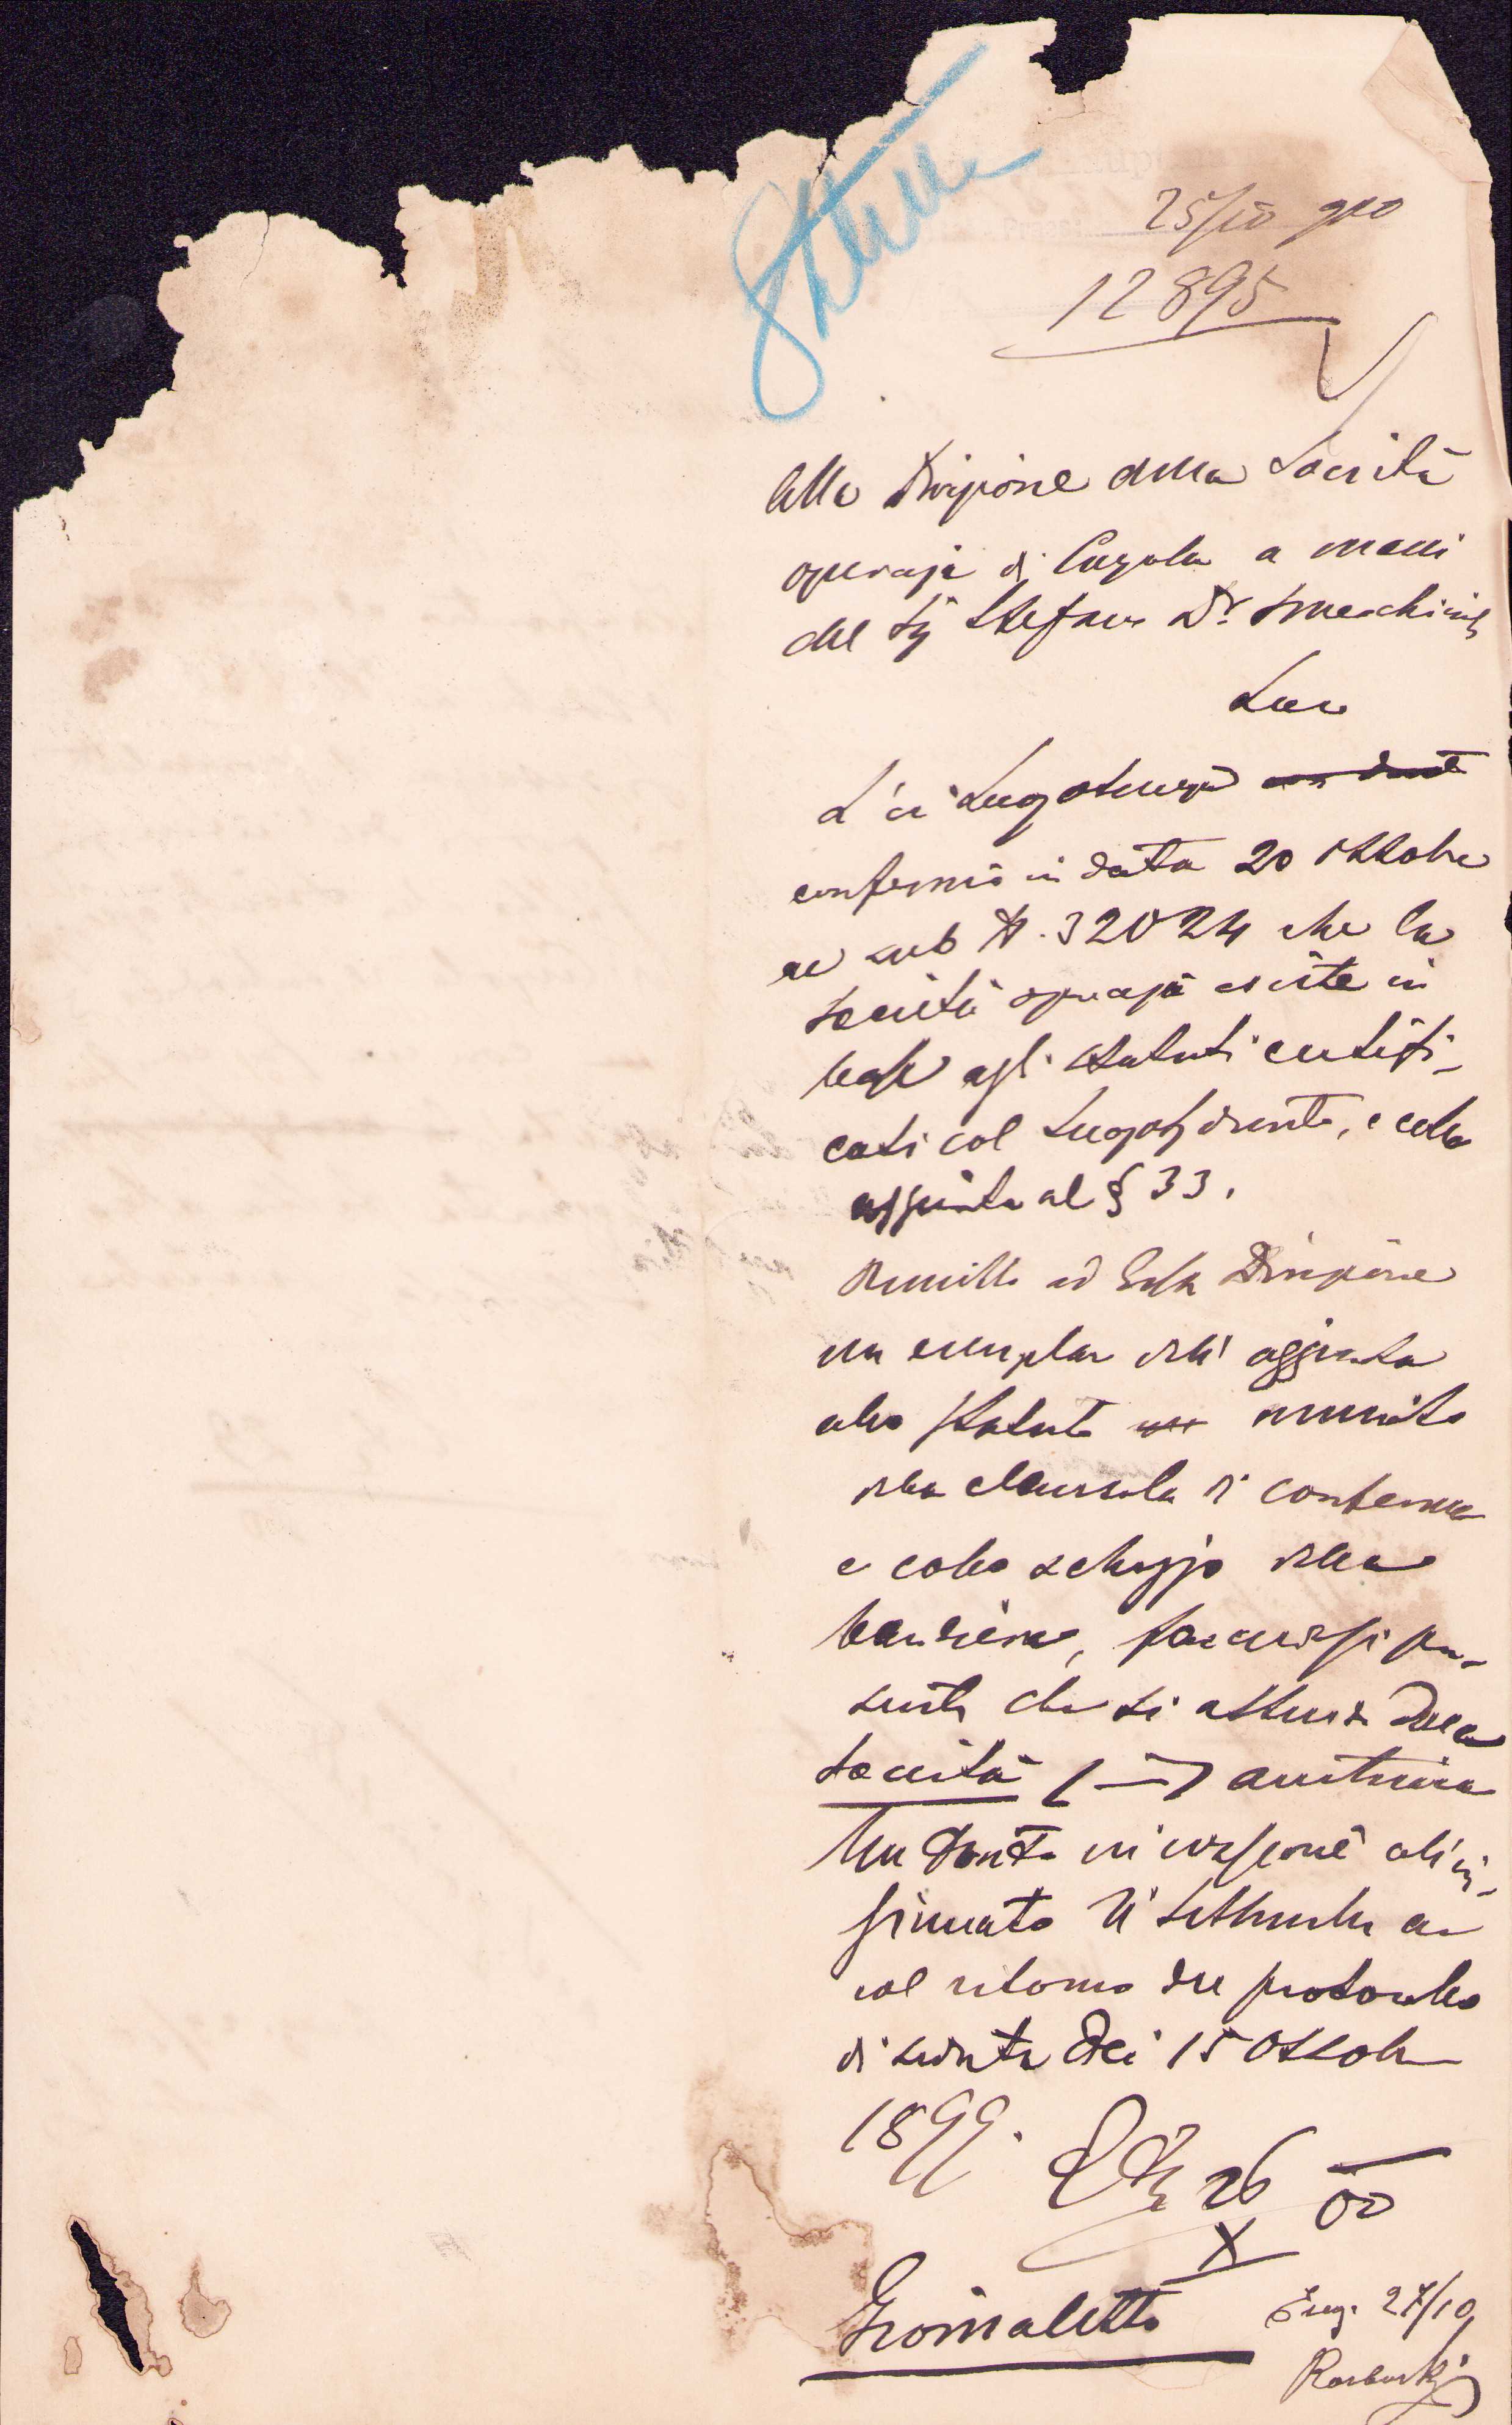 25/10 900
12895
Alla Direzione della Società
operaja di Curzola a mani
del Sig Stefano Dr. Smerchinich
Loco
L'i. r. Luogotenza
confermò in data 20 Ottobre
ac sub N. 32024 che la
Società operaja esiste in
base agli statuti certifi-
cati col Luogot dto, e colla
aggiunta al § 33.
Rimetto ad Essa Direzione
un esemplar dell' aggiunta
allo Statuto munito
della clausola di conferma
e collo schizzo della
bandiera, facendosi pre-
sente che si attende dalla
Società austriaca
Un tanto in evasione all' in-
sinuato 11 Settembre ac
col ritorno del protocollo
di seduta dei 15 Ottobre
1899.
26 00
X
27/10